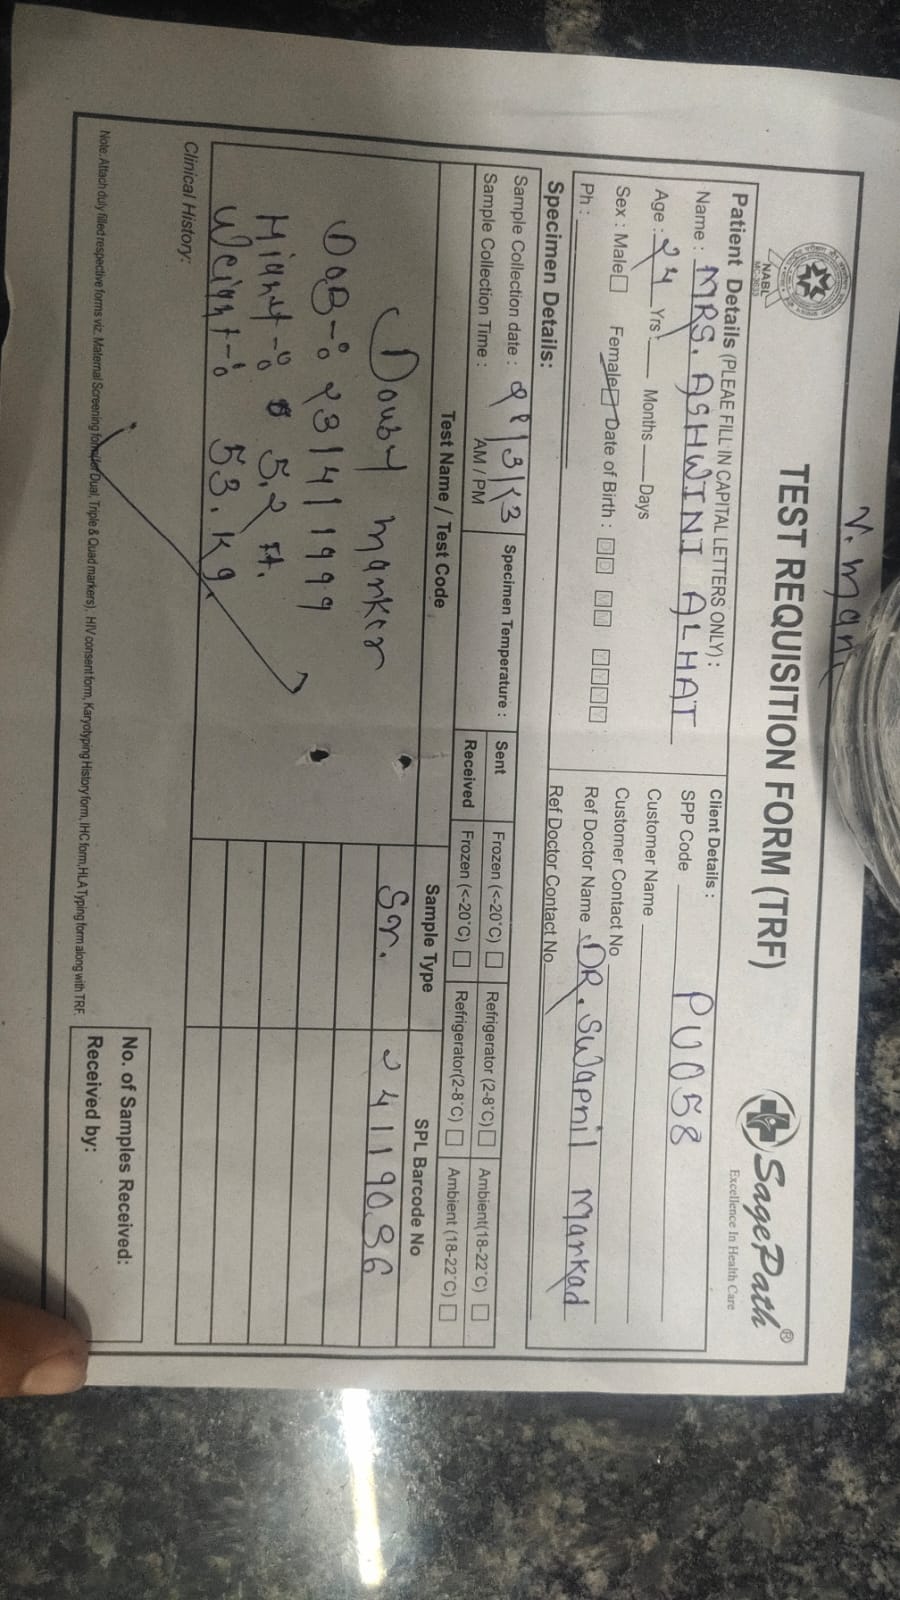 V. Man
TEST REQUISITION FORM (TRF)
NABL
SagePath®
Excellence In Health Care
Patient Details (PLEAE FILL IN CAPITAL LETTERS ONLY) :
Name : MRS. ASHWINI ALHAT
Age : 24 Yrs. Months Days
Sex : Male Female Date of Birth : DD MM YYYY
Ph :
Client Details :
SPP Code PU058
Customer Name
Customer Contact No
Ref Doctor Name DR. Swapnil Markad
Ref Doctor Contact No
Specimen Details:
Sample Collection date :
Sample Collection Time : AM / PM
Specimen Temperature :
Sent Frozen (<-20°C) Refrigerator (2-8°C) Ambient(18-22°C)
Received Frozen (<-20°C) Refrigerator(2-8°C) Ambient (18-22°C)
Test Name / Test Code Sample Type SPL Barcode No
Douby marker Sr. 24119086
DOB-: 23/4/1999
Hight-: 5.2 ft.
Weight-: 53. kg.
Clinical History:
Note: Attach duly filled respective forms viz. Maternal Screening form (for Dual, Triple & Quad markers), HIV consent form, Karyotyping History form, IHC form, HLA Typing form along with TRF.
No. of Samples Received:
Received by: